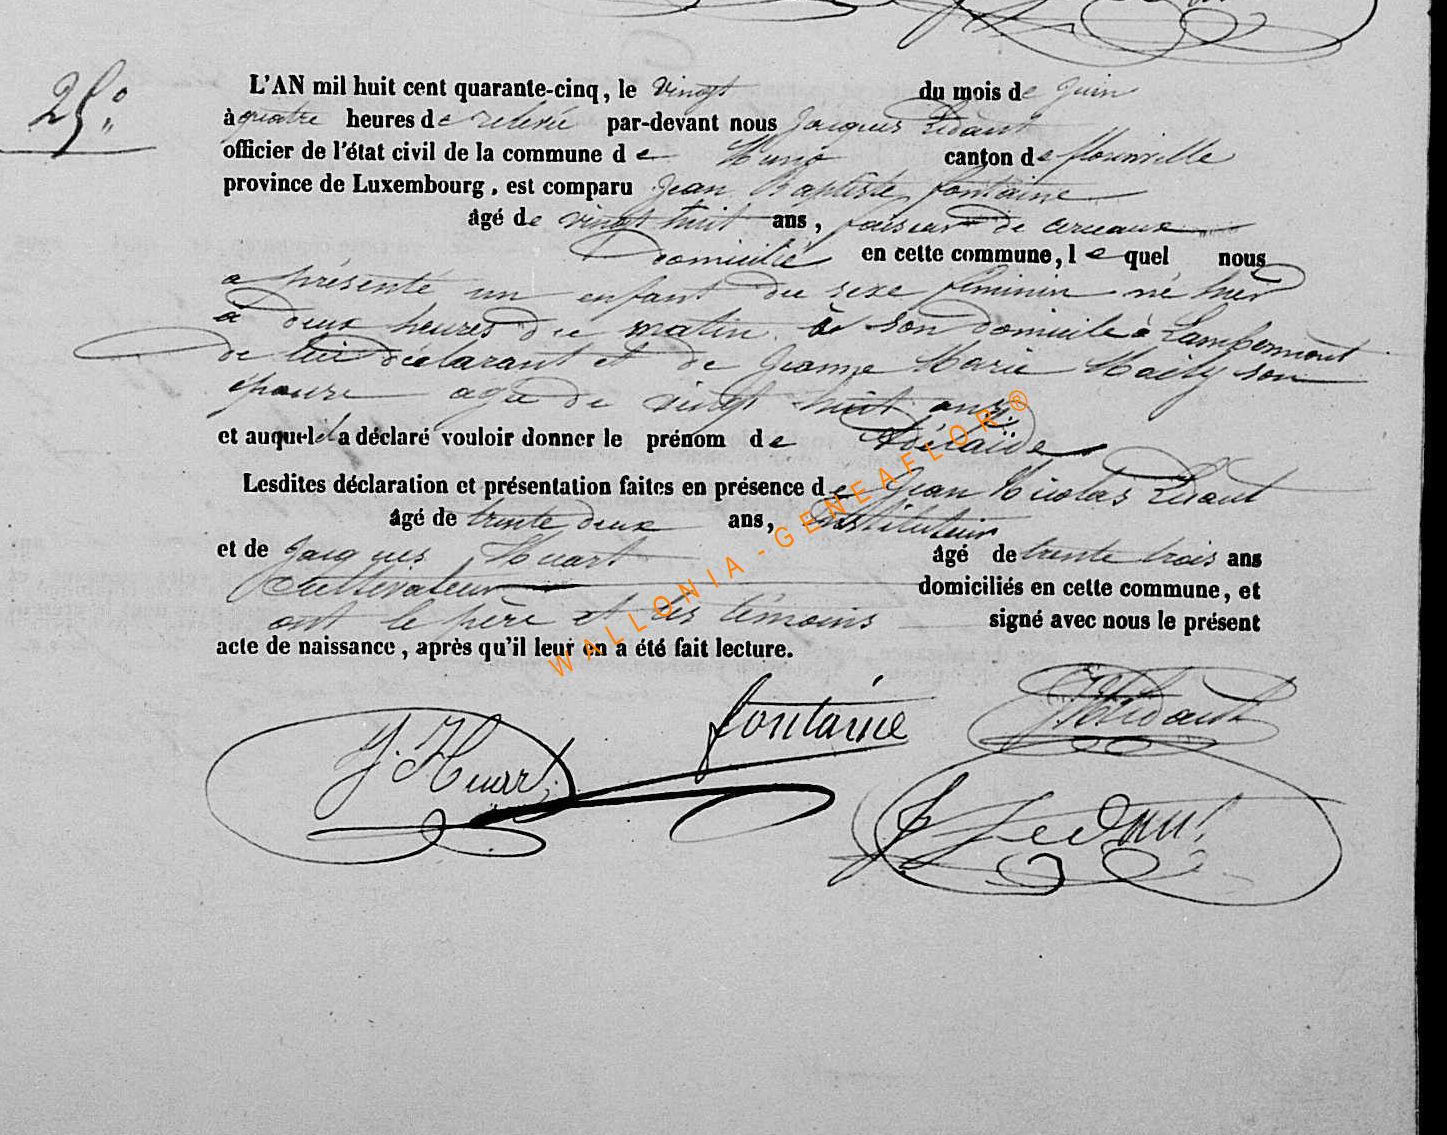 25°
L'AN mil huit cent quarante-cinq, le vingt du mois de Juin
à quatre heures de relevé par-devant nous Jacques Lédant
officier de l'état civil de la commune de Muno canton de florenville
province de Luxembourg, est comparu Jean Baptiste fontaine
âgé de vingt huit ans, faiseur de cerceaux
domicilié en cette commune, lequel nous
a présenté un enfant du sexe féminin né hier
à deux heures du matin à son domicile à Lambermont
de lui déclarant et de Jeanne Marie son
épouse agée de vingt huit ans
et auquel a déclaré vouloir donner le prénom de Adélaïde
Lesdites déclaration et présentation faites en présence de Jean Nicolas Lédant
âgé de trente deux ans, instituteur
et de Jacques Huart âgé de trente trois ans
Cultivateur domiciliés en cette commune, et
ont le père et les témoins signé avec nous le présent
acte de naissance, après qu'il leur en a été fait lecture.
WALLONIA - GENEAFLOR ®
J. Huart fontaine
J Lédant